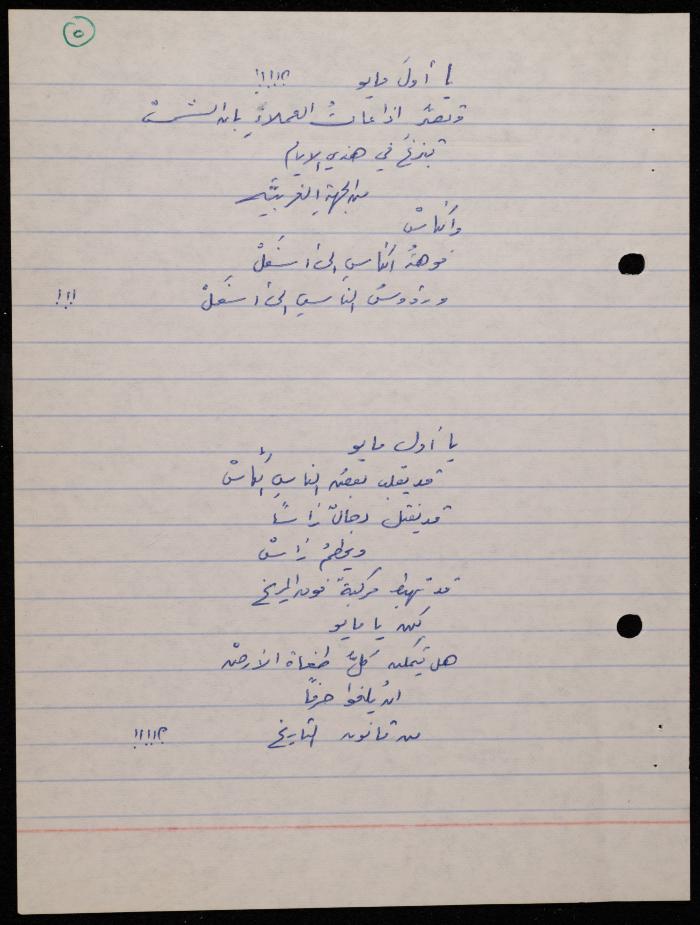 ٥
يا أولَ مايو !!!!؟
وتصرّ اذاعاتُ العملاءِ بان الشمسْ
تبزغُ في هذي الايام
من الجهةِ الغربيّة
والناسْ
فوهةُ الكأسِ إلى أسفلْ
ورؤوسُ الناسِ إلى أسفلْ !!!
يا أول مايو
قد يقلب بعضُ الناسِ الكأسْ
قد يقتل دجالٌ رأسًا
ويحطمُ رأسْ
قد تهبط مركبةٌ فوق المريخ
لكن يا مايو
هل يتمكن كلُّ طغاة الأرضْ
ان يُلغوا حرفًا
من قانون التاريخ !!!!؟